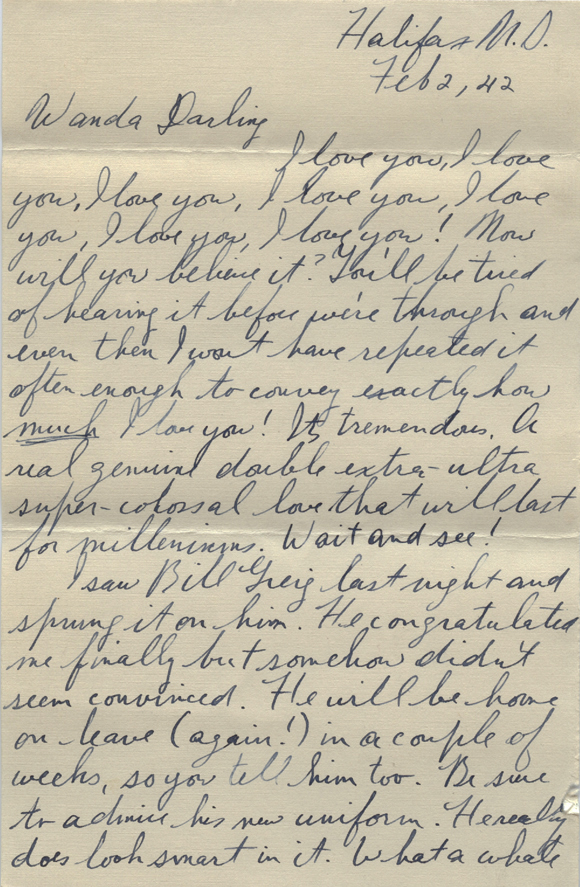 Halifax N.S.
Feb 2, 42
Wanda Darling
I love you, I love
you, I love you, I love you, I love
you, I love you, I love you! Now
will you believe it? You'll be tired
of hearing it before we're through and
even then I won't have repeated it
often enough to convey exactly how
much I love you! Its tremendous. A
real genuine double extra-ultra
super-colossal love that will last
for milleniums. Wait and see!
I saw Bill Greig last night and
sprung it on him. He congratulated
me finally but somehow didn't
seem convinced. He will be home
on leave (again!) in a couple of
weeks, so you tell him too. Be sure
to admire his new uniform. He really
does look smart in it. What a whale